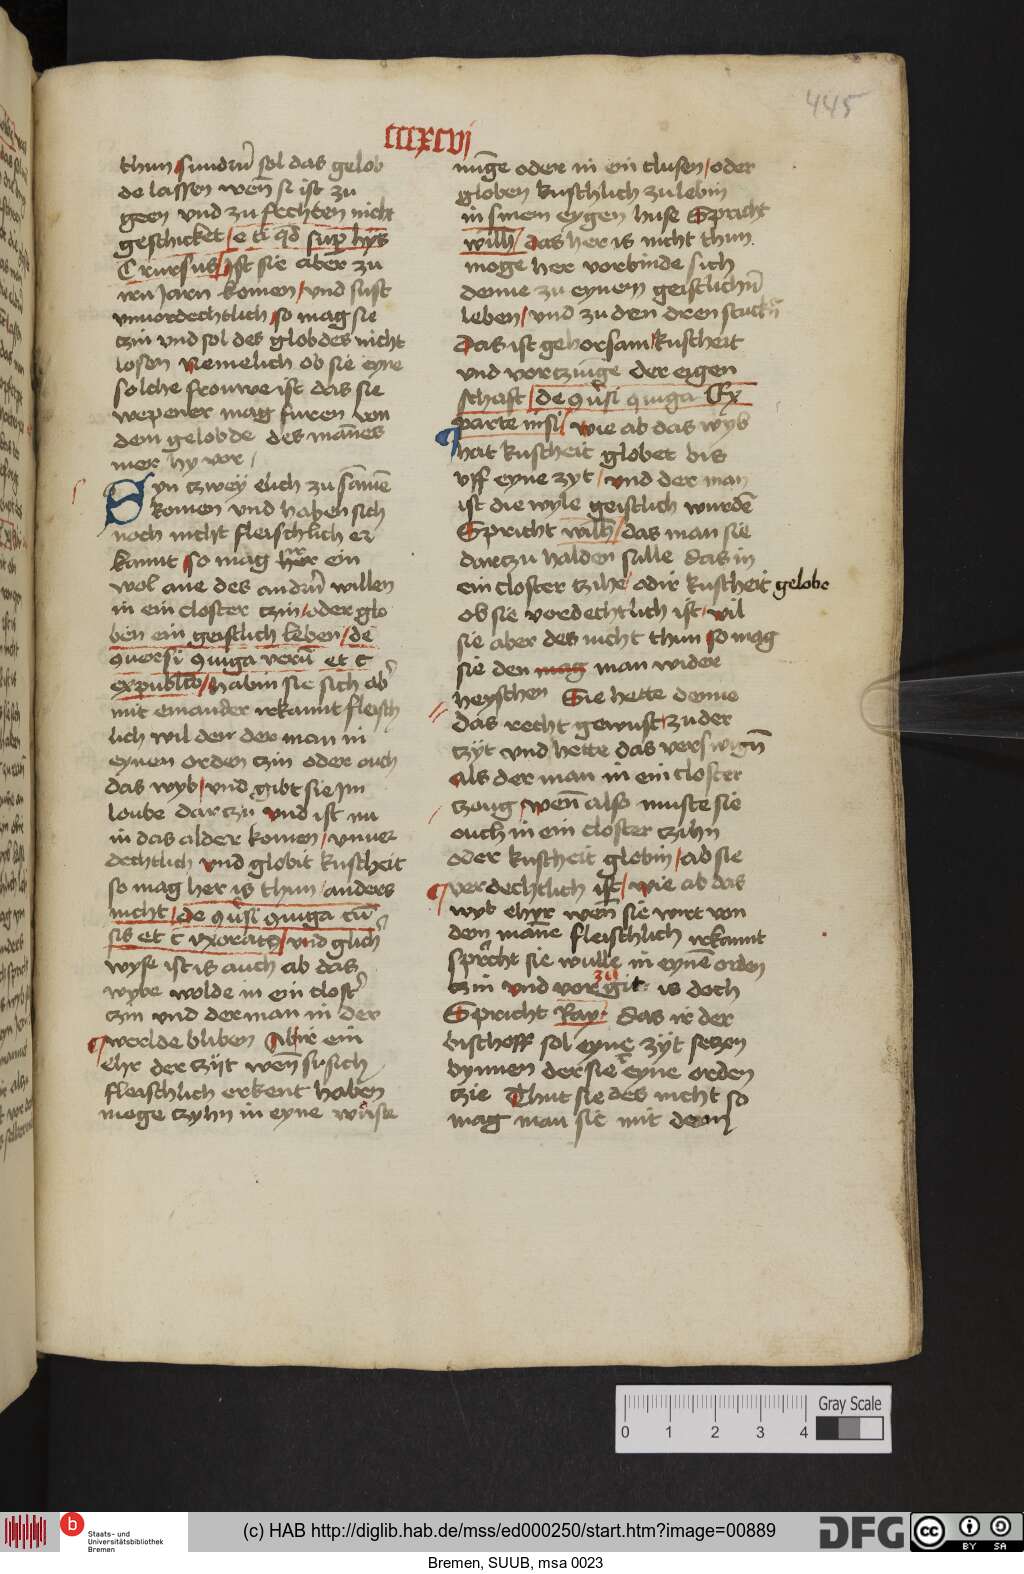 445
cccxcvj
thun sundern̄ sol das gelob
de lassen wen̄ si ist zu
geen vnd zu fechten nicht
geschicket / e ti qd sup hys
C rursus / Ist sie aber zu
irn Jarn komen / vnd sust
vnuordechtlich so mag sie
czin vnd sol des globdes nicht
losen Nemelich ob sie eyne
solche frouwe ist das sie
wepener mag furen von
dem gelobde des mānes
mer hy vor /
Syn czwey elich zu sāmē
komen vnd haben sich
noch nicht fleischlich er
kannt so mag her ein
wol ane des andrn̄ willen
in ein closter czin / oder glo
ben ein geistlich leben / de
9uersi 9iuga verū et c
expublico / habin sie sich ab̉
mit einander irkannt fleisch
lich wil denr der man in
eynen orden czin oder ouch
das wyb / vnd gibt sie im
loube darczu vnd ist nu
in das alder komen / vnuer
dechtlich vnd globit kuscheit
so mag her is thun / anders
nicht / de 9ūsi 9iuga cū
sis et c vxoratꝫ / vnd glich̉
wyse ist is auch ab das
wybe wolde in ein clost̉
czin vnd der man in der
werlde bliben Abir ein
ehr der czijt wen̄ si sich
fleischlich erkent haben
moge czyhn in eyne wuste
nu̅ge oder in ein clusen / oder
globen kuschlich zu lebin
in sinem eygen huse Spricht
wilh̄ / das her is nicht thun
moge her vorbinde sich
denne zu eynem geistlichn̄
leben / vnd zu den dren stuckn̄
Das ist gehorsam kuscheit
vnd vortzinge der eigen
schaft / de 9ūsi 9iuga Ex
parte in si / Wie ab das wyb
hat kuscheit globet bis
vff eyne zyt / vnd der man
ist die wyle geistlich wurdē
Spricht wilh̄ / das man sie
darczu halden sulle das in
ein closter czihe odir kuscheit gelobe
ob sie vordechtlich ist / wil
sie aber des nicht thun so mag
sie den mag man wider
heyschen Sie hette denne
das recht gewust / zu der
czyt vnd hette das verswign̄
als der man in ein closter
czoug / wen̄ also muste sie
ouch in ein closter czihn
oder kuscheit globin / ab sie
verdechtlich ist / wie ab das
wyb ehyr wen̄ sie wirt von
dem māne fleischlich irkannt
sprcht sie wulle in eynē orden
zu
czin vnd vorgit is doch
Spricht Ray: das ir der
bischoff sol eyne zyt seczen
bynnen der sie eyne orden
czie Thut sie des nicht so
mag man sie mit dem
0 1 2 3 4
Gray Scale
b
Staats- und
Universitätsbibliothek
Bremen
(c) HAB http://diglib.hab.de/mss/ed000250/start.htm?image=00889
DFG
cc
BY SA
Bremen, SUUB, msa 0023